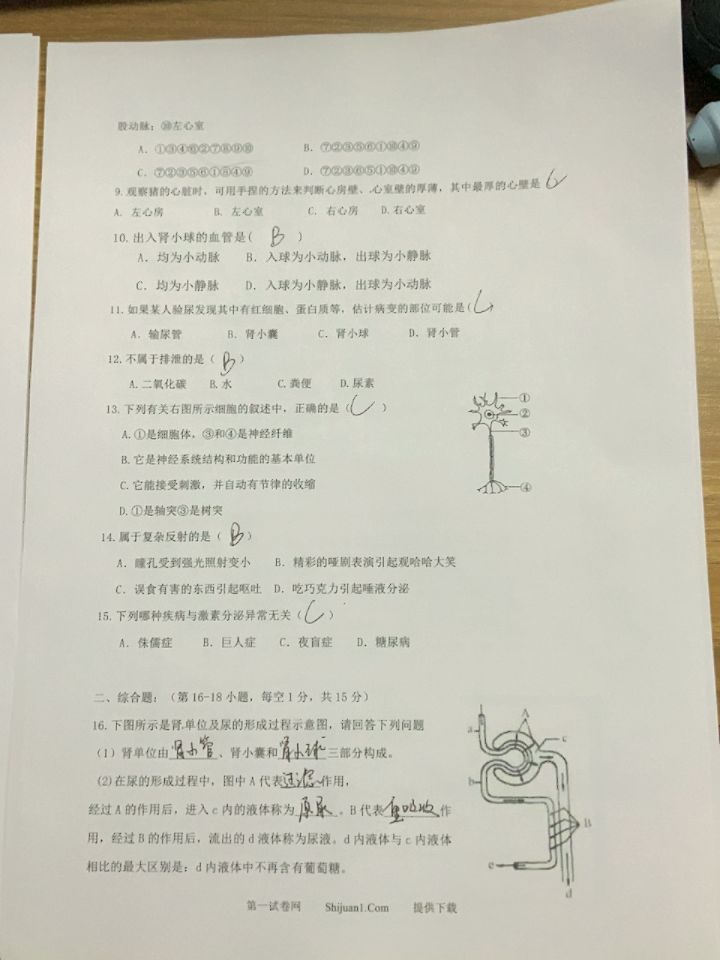 股动脉；⑩左心室
A. ①③④⑥②⑦⑧⑨⑩ B. ⑦②③⑤⑥①⑩④⑨
C. ⑦②③⑤⑥①⑤④⑨ D. ⑦②③⑥⑤①⑩④⑨
9.观察猪的心脏时，可用手捏的方法来判断心房壁、心室壁的厚薄，其中最厚的心壁是
A. 左心房 B. 左心室 C. 右心房 D.右心室
10.出入肾小球的血管是( B )
A. 均为小动脉 B. 入球为小动脉，出球为小静脉
C. 均为小静脉 D. 入球为小静脉，出球为小动脉
11.如果某人验尿发现其中有红细胞、蛋白质等，估计病变的部位可能是( C )
A. 输尿管 B. 肾小囊 C. 肾小球 D. 肾小管
12.不属于排泄的是（ B ）
A.二氧化碳 B.水 C.粪便 D.尿素
13.下列有关右图所示细胞的叙述中，正确的是（ C ）
A.①是细胞体，③和④是神经纤维
B.它是神经系统结构和功能的基本单位
C.它能接受刺激，并自动有节律的收缩
D.①是轴突③是树突
①
②
③
④
14.属于复杂反射的是（ B ）
A. 瞳孔受到强光照射变小 B. 精彩的哑剧表演引起观哈哈大笑
C. 误食有害的东西引起呕吐 D. 吃巧克力引起唾液分泌
15.下列哪种疾病与激素分泌异常无关（ C ）
A. 侏儒症 B. 巨人症 C. 夜盲症 D. 糖尿病
二、综合题：（第16-18小题，每空1分，共15分）
16.下图所示是肾单位及尿的形成过程示意图，请回答下列问题
（1）肾单位由肾小管、肾小囊和肾小球三部分构成。
(2)在尿的形成过程中，图中A代表过滤作用，
经过A的作用后，进入c内的液体称为原尿。B代表重吸收作
用，经过B的作用后，流出的d液体称为尿液。d内液体与c内液体
相比的最大区别是：d内液体中不再含有葡萄糖。
A
a
c
b
B
e
d
第一试卷网 Shijuan1.Com 提供下载